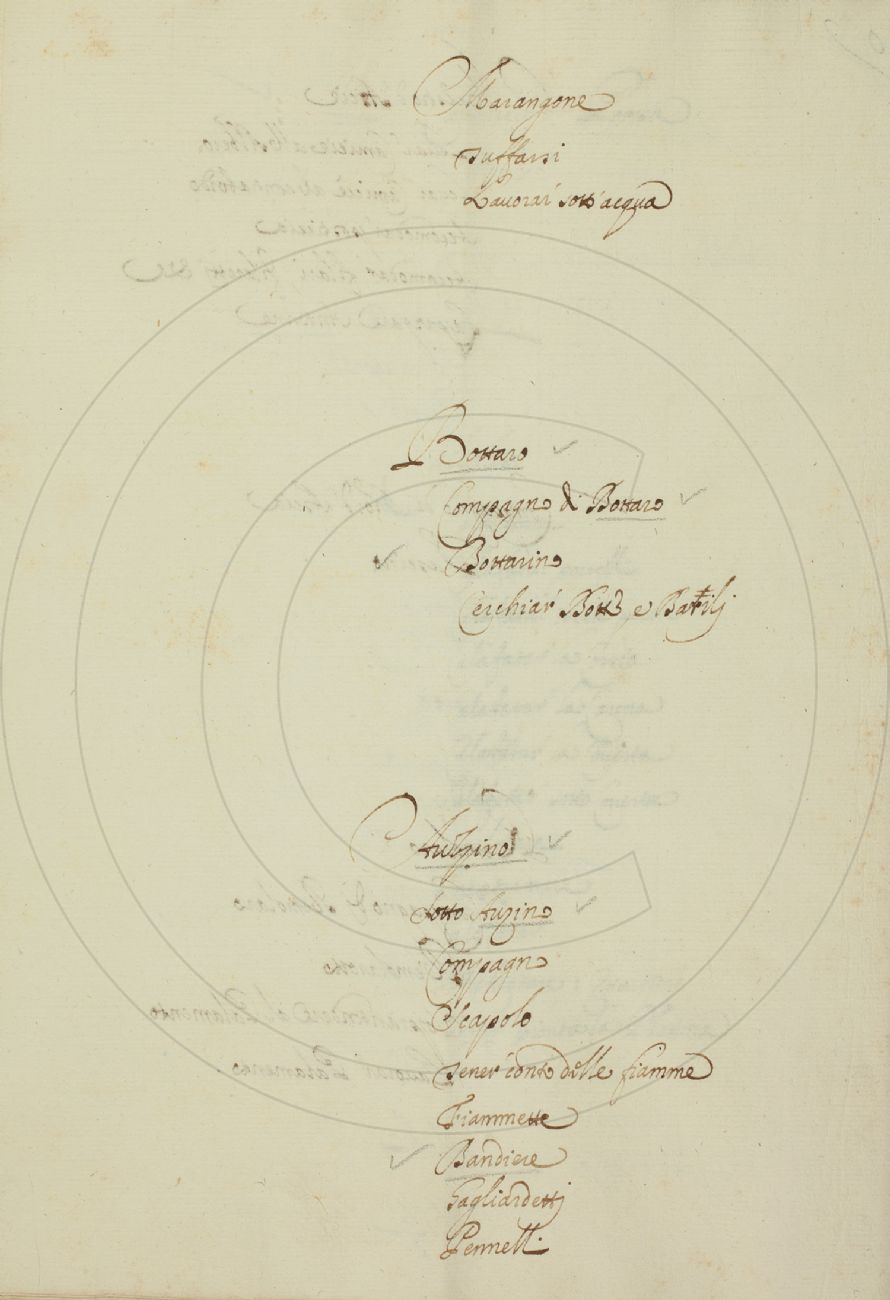 Marangone
tuffarsi
Lavorar sott'acqua
Bottaro
Compagno di Bottaro
Bottarino
Cerchiar Botti e Barilj
Auzzino
Sotto Auzino
Compagno
Scapolo
tener conto delle fiamme
Fiammette
Bandiere
Gagliardettj
Pennelli